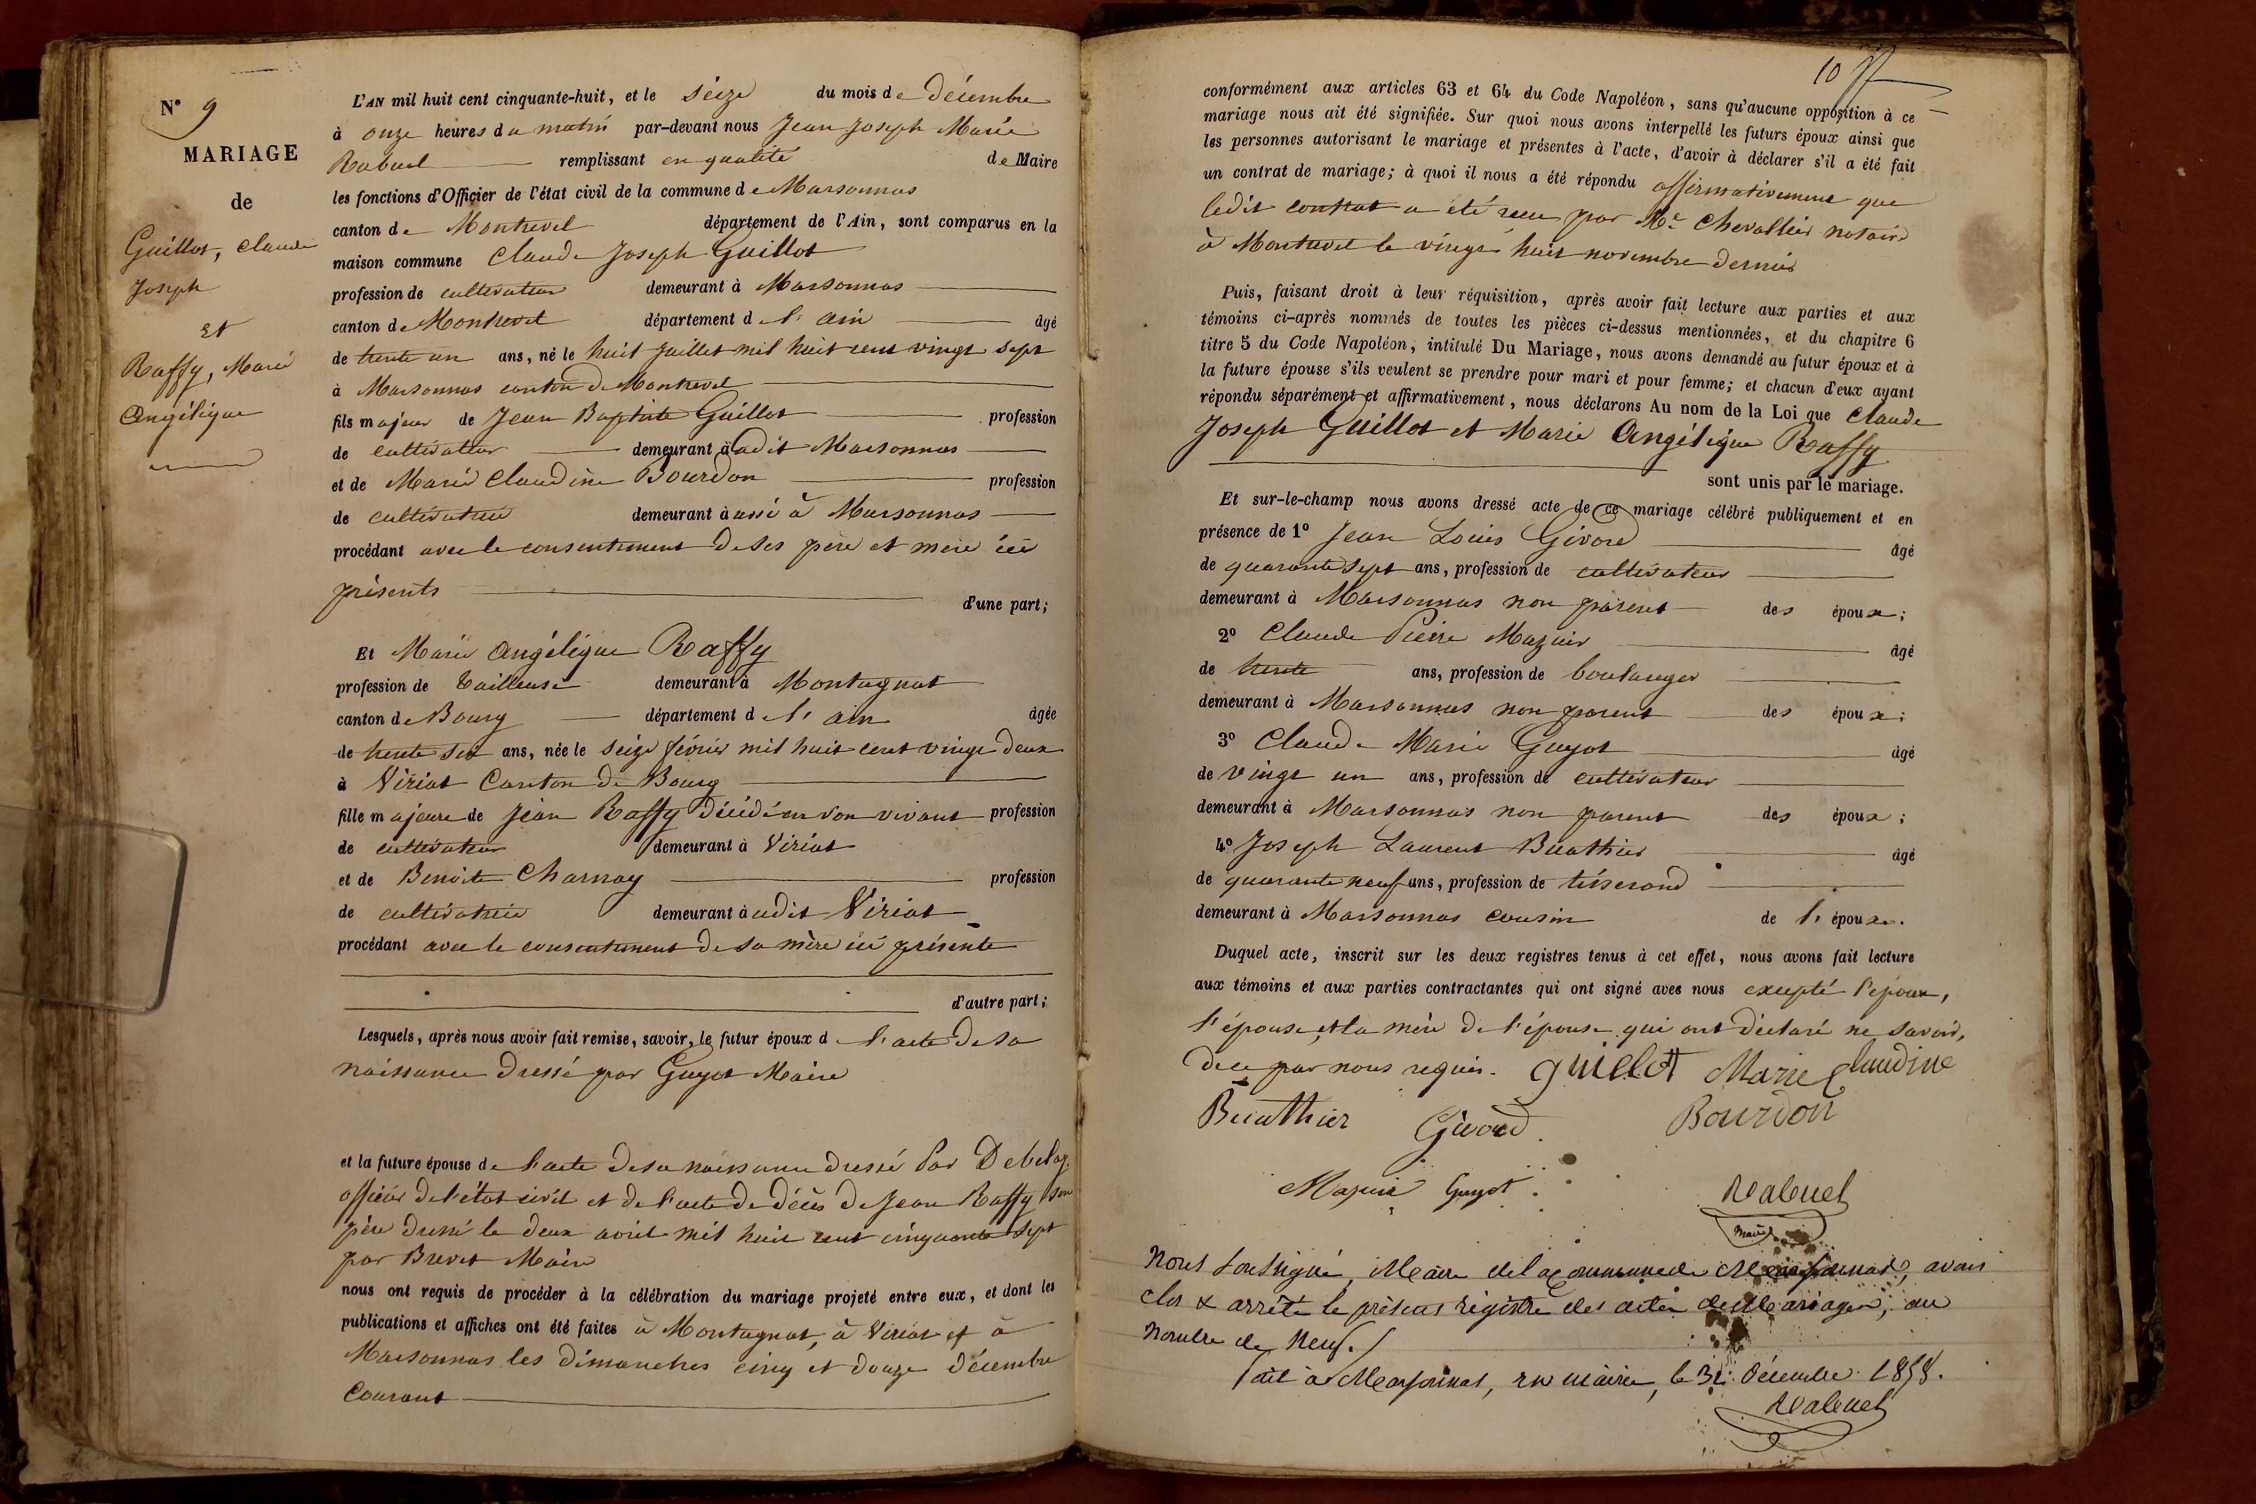 N° 9
MARIAGE
de
Guillot, Claude
Joseph
et
Raffy, Marie
Angélique
L'AN mil huit cent cinquante-huit, et le seize du mois de décembre
à onze heures du matin par-devant nous Jean Joseph Marie
Rabuel remplissant en qualité de Maire
les fonctions d'Officier de l'état civil de la commune de Marsonnas
canton de Montrevel département de l'Ain, sont comparus en la
maison commune Claude Joseph Guillot
profession de cultivateur demeurant à Marsonnas
canton de Montrevel département de l'ain âgé
de trente un ans, né le huit Juillet mil huit cent vingt sept
à Marsonnas canton de Montrevel
fils majeur de Jean Baptiste Guillot profession
de cultivateur demeurant audit Marsonnas
et de Marie Claudine Bourdon profession
de cultivatrice demeurant aussi à Marsonnas
procédant avec le consentement de ses père et mère ici
présents d'une part;
Et Marie Angélique Raffy
profession de tailleuse demeurant à Montagnat
canton de Bourg département de l'ain âgée
de trente six ans, née le seize février mil huit cent vingt deux
à Viriat Canton de Bourg
fille majeure de Jean Raffy décédé en son vivant profession
de cultivateur demeurant à Viriat
et de Benoite Charnay profession
de cultivatrice demeurant audit Viriat
procédant avec le consentement de sa mère ici présente
d'autre part;
Lesquels, après nous avoir fait remise, savoir, le futur époux de l'acte de sa
naissance dressé par Guyot Maire
et la future épouse de l'acte de sa naissance dressé par Debelay
officier de l'état civil et de l'acte de décès de Jean Raffy son
père dressé le deux avril mil huit cent cinquante sept
par Brevet Maire
nous ont requis de procéder à la célébration du mariage projeté entre eux, et dont les
publications et affiches ont été faites à Montagnat, à Viriat et à
Marsonnas les dimanches cinq et douze décembre
Courant
10
conformément aux articles 63 et 64 du Code Napoléon, sans qu'aucune opposition à ce
mariage nous ait été signifiée. Sur quoi nous avons interpellé les futurs époux ainsi que
les personnes autorisant le mariage et présentes à l'acte, d'avoir à déclarer s'il a été fait
un contrat de mariage; à quoi il nous a été répondu affirmativement que
ledit contrat a été reçu par Me Chevallier notaire
à Montrevel le vingt huit novembre dernier
Puis, faisant droit à leur réquisition, après avoir fait lecture aux parties et aux
témoins ci-après nommés de toutes les pièces ci-dessus mentionnées, et du chapitre 6
titre 5 du Code Napoléon, intitulé Du Mariage, nous avons demandé au futur époux et à
la future épouse s'ils veulent se prendre pour mari et pour femme; et chacun d'eux ayant
répondu séparément et affirmativement, nous déclarons Au nom de la Loi que Claude
Joseph Guillot et Marie Angélique Raffy
sont unis par le mariage.
Et sur-le-champ nous avons dressé acte de ce mariage célébré publiquement et en
présence de 1° Jean Louis Givord âgé
de quarante sept ans, profession de cultivateur
demeurant à Marsonnas non parent des époux;
2° Claude Pierre Mazuir âgé
de trente ans, profession de boulanger
demeurant à Marsonnas non parent des époux;
3° Claude Marie Guyot âgé
de vingt un ans, profession de cultivateur
demeurant à Marsonnas non parent des époux;
4° Joseph Laurent Buathier âgé
de quarante neuf ans, profession de tisserand
demeurant à Marsonnas cousin de l'époux.
Duquel acte, inscrit sur les deux registres tenus à cet effet, nous avons fait lecture
aux témoins et aux parties contractantes qui ont signé avec nous excepté l'époux,
l'épouse, et la mère de l'épouse qui ont déclaré ne savoir,
de ce par nous requis. guillot Marie Claudine
Buathier Givord Bourdon
Mazuir Guyot Rabuel
maire
Nous soussigné, Maire de la commune de Marsonnas, avons
clos & arrêté le présent registre des actes de Mariages, au
nombre de Neuf.
fait à Marsonnas, en mairie, le 31 Décembre 1858.
Rabuel